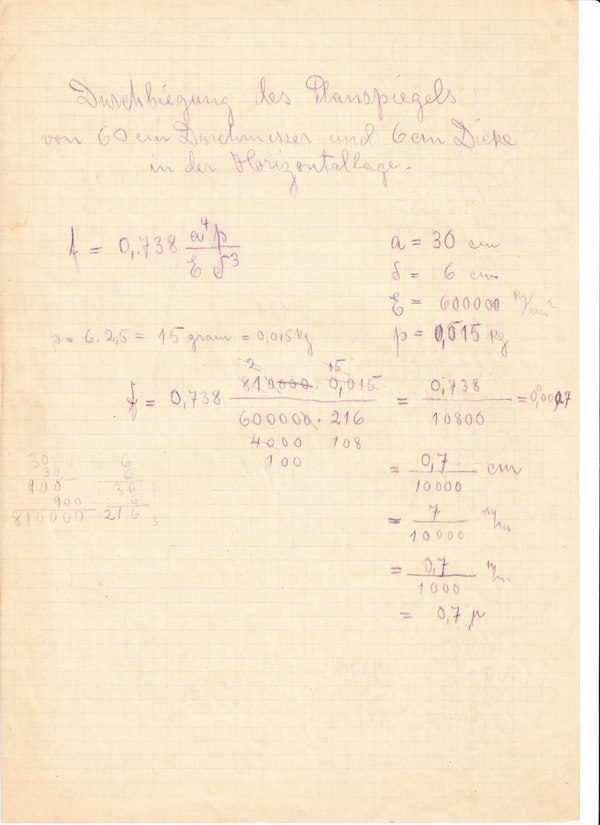 Durchbiegung des Planspiegels
von 60 cm Durchmesser und 6 cm Dicke
in der Horizontallage.
f = 0,738 a⁴p / E δ³
a = 30 cm
δ = 6 cm
E = 600000 kg/cm²
p = 0,015 kg
p = 6. 2,5 = 15 gram = 0,015 kg
2 15
f = 0,738 810000 . 0,015 / 600000 . 216 = 0,738 / 10800 = 0,00007
4000 108
100
= 0,7 / 10000 cm
= 7 / 10000 m/m
= 0,7 / 1000 m/m
= 0,7 μ
30
30
900
900
810000
6
6
36
6
216